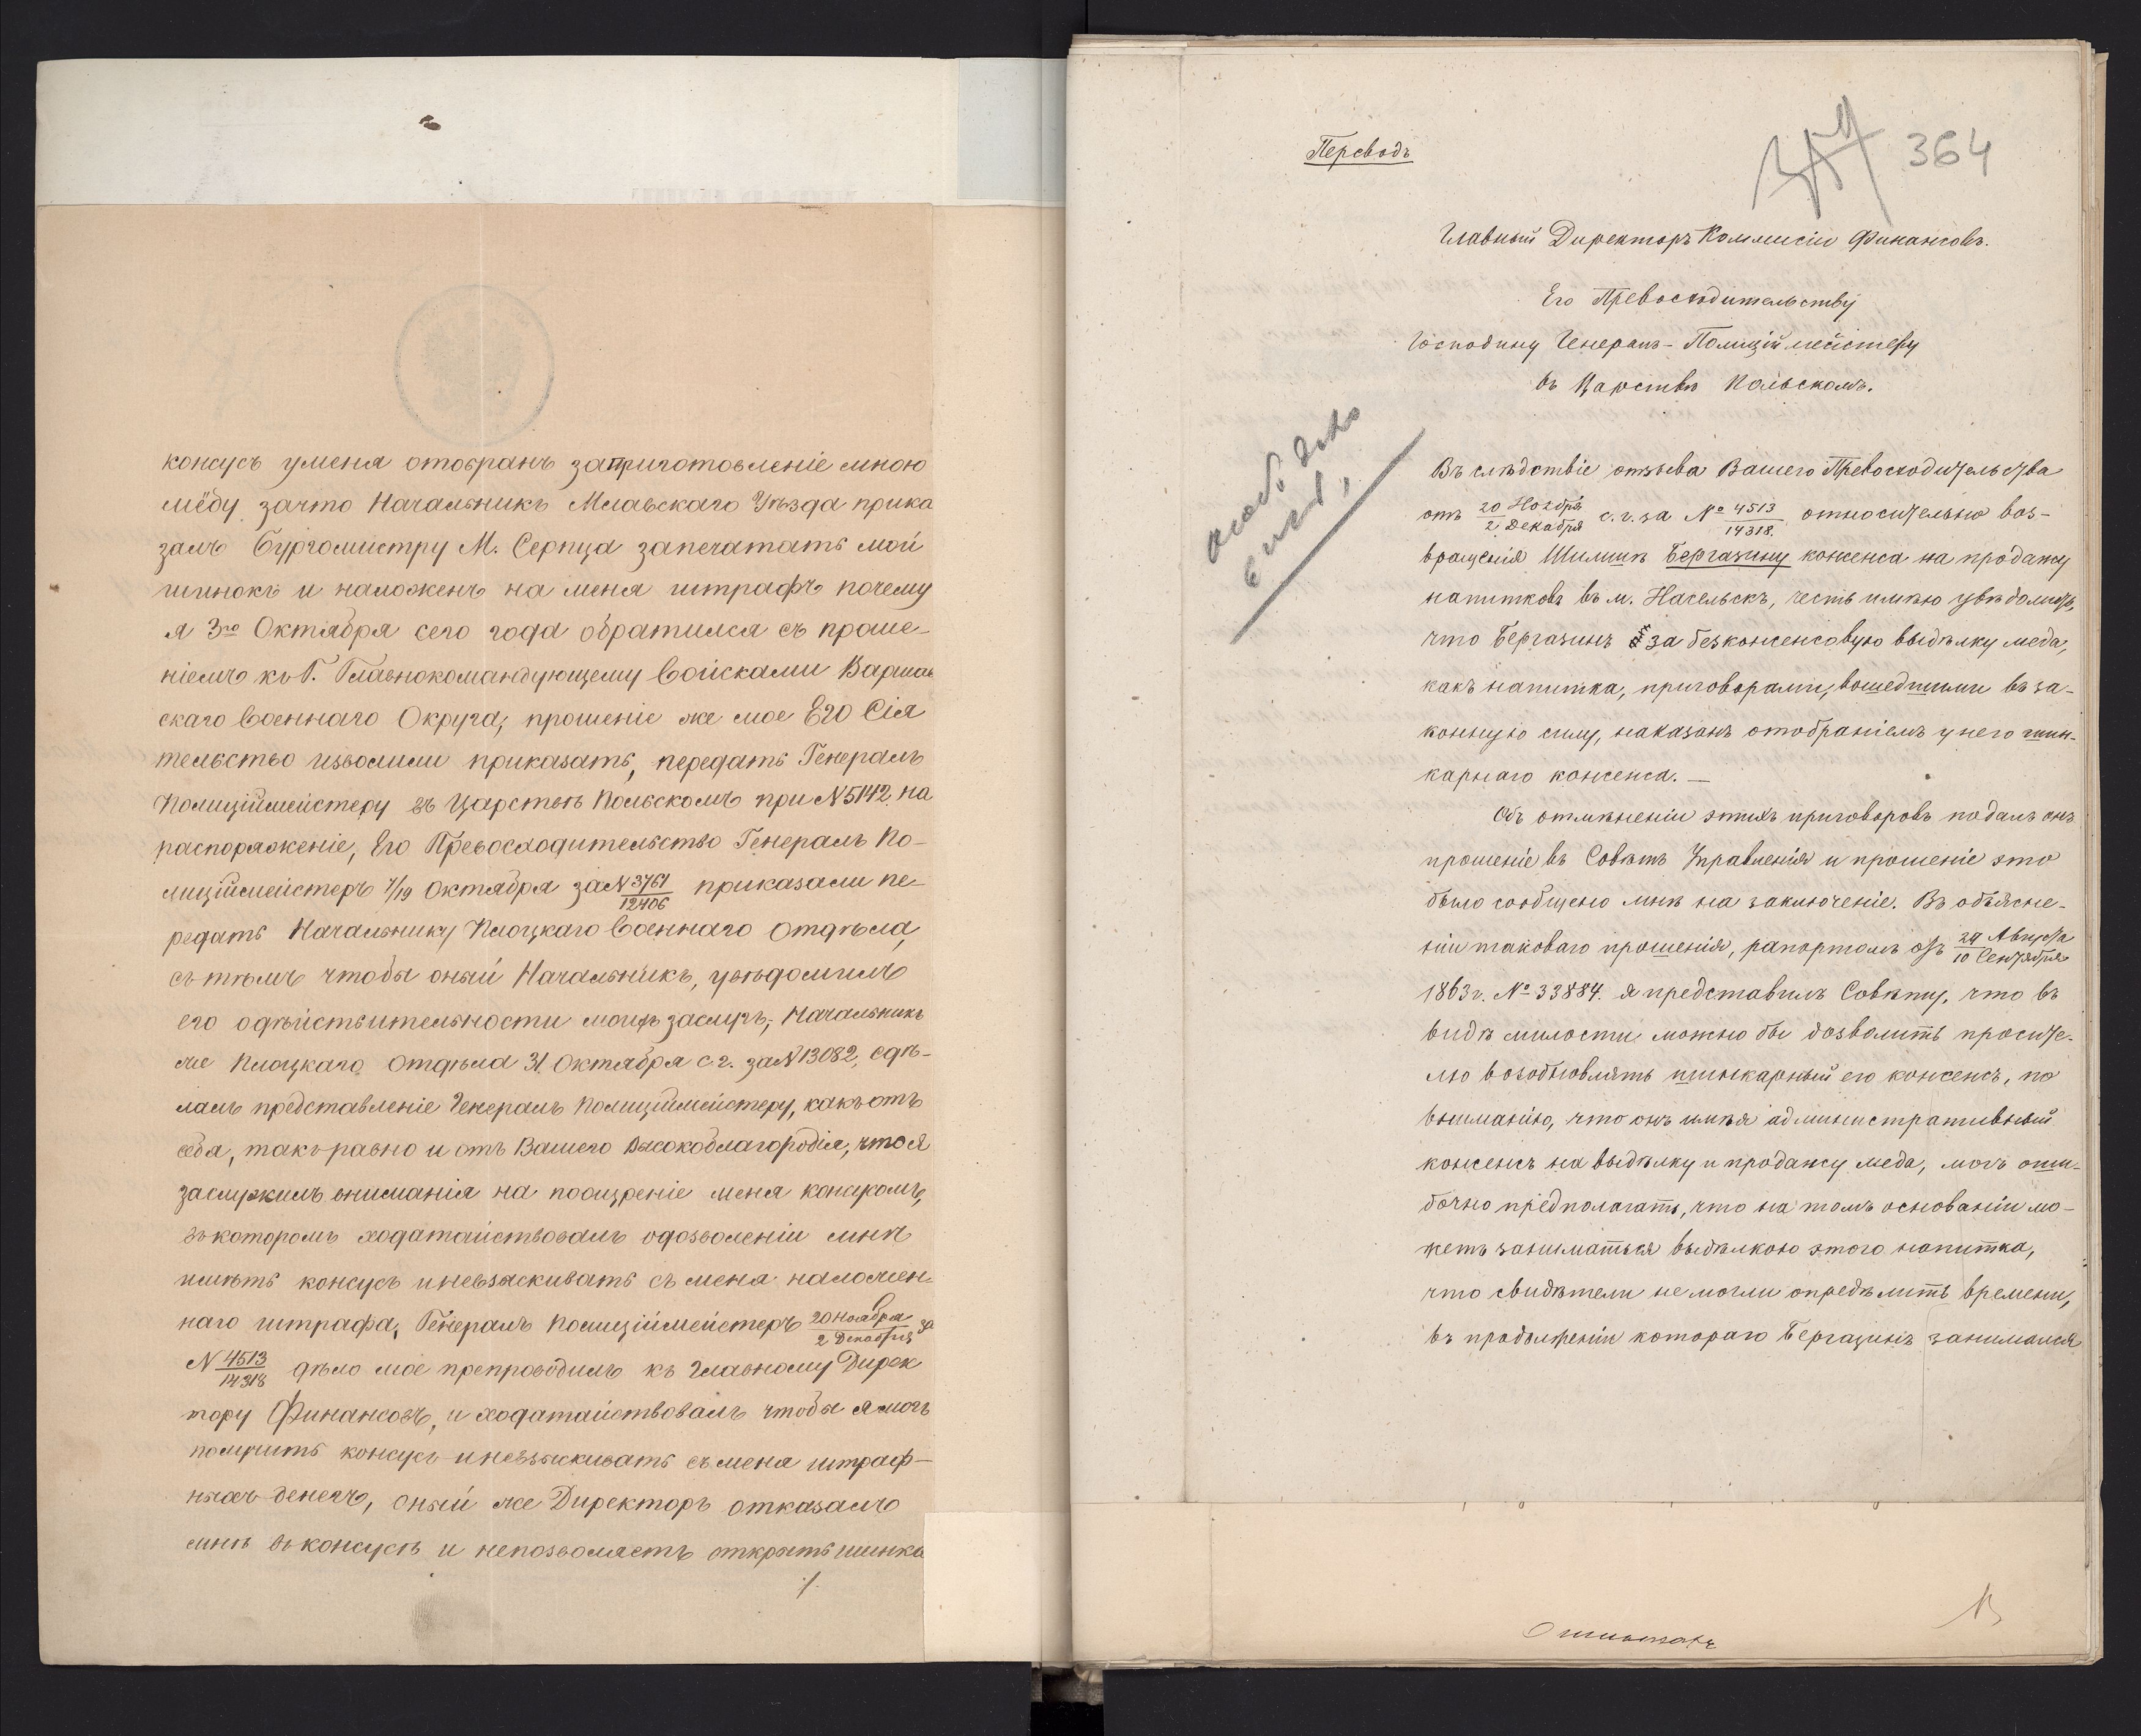 консусъ уменя отобранъ заприготовленіе мною
мёду зачто Начальникъ Млавскаго Уѣзда прика
залъ бургомистру М. Серпца запечатать мой
шинокъ и наложенъ на меня штрафъ почему
я 3го Октября сего года обратился съ проше-
ніемъ къ Г. Главнокомандующему войсками Варшав
скаго военнаго Округа, прошеніе же мое Его Сія
тельство изволили приказать, передать Генералъ
Полиціймейстеру въ Царствѣ Польскомъ при N 5142, на
распоряженіе, Его Превосходительство Генералъ По-
лиціймейстеръ 7/19 Октября за N 3761/12406 приказали пе-
редать Начальнику Плоцкаго военнаго Отдѣла,
съ тѣмъ чтобы оный Начальникъ, увѣдомилъ
его одѣйствительности моихъ заслугъ, Начальникъ
же Плоцкаго Отдѣла 31 Октября с. г. за N 13082, сдѣ-
лалъ представленіе Генералъ Полиціймейстеру, какъ отъ
себя, такъ равно и отъ Вашего Высокоблагородія, что я
заслужилъ вниманія на поощреніе меня консусомъ,
въ которомъ ходатайствовалъ одозволеніи мнѣ
имѣть консусъ и невзыскивать съ меня наложен-
наго штрафа, Генералъ Полиціймейстеръ 20 Ноября/2 Декабря за
N 4513/14318 дѣло мое препроводилъ къ Главному Дирек
тору Финансовъ, и ходатайствовалъ чтобы я могъ
получить консусъ и невзыскивать съ меня штраф-
ныхъ денегъ, оный же Директоръ отказалъ
мнѣ въ консусѣ и непозволяетъ открыть шинка
./.
Переводъ
364
Главный Директоръ Коммисіи Финансовъ.
Его Превосходительству
Господину Генералъ-Полиціймейстеру
въ Царствѣ Польскомъ.
Въ слѣдствіе отзыва Вашего Превосходительства
отъ 20 Ноября/2 Декабря с. г. за № 4513/14318. относительно воз-
вращенія Шлимѣ Бергазину консенса на продажу
напитковъ въ м. Насельскъ, честь имѣю увѣдомить,
что Бергазинъ за безконсенсовую выдѣлку меда,
какъ напитка, приговорами, вошедшими въ за-
конную силу, наказанъ отобраніемъ у него шин-
карнаго консенса. —
Объ отмѣненіи этихъ приговоровъ подалъ онъ
прошеніе въ Совѣтъ Управленія и прошеніе это
было сообщено мнѣ на заключеніе. Въ объясне-
ніи таковаго прошенія, рапортомъ отъ 29 Августа/10 Сентября
1863 г. № 33884. я представилъ Совѣту, что въ
видѣ милости можно бы дозволить просите-
лю возобновлять шинкарный его консенсъ, по
вниманію, что онъ имѣя административный
консенсъ на выдѣлку и продажу меда, могъ оши-
бочно предполагать, что на томъ основаніи мо-
жетъ заниматься выдѣлкою этого напитка,
что свидѣтели не могли опредѣлить времени,
въ продолженіи котораго Бергазинъ занимался